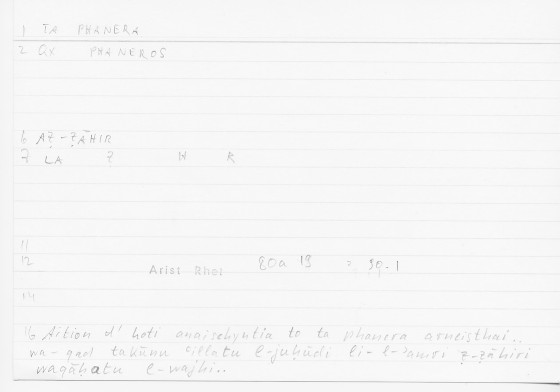 1 TA PHANERA
2 Qx PHANEROS
6 AẒ-ẒĀHIR
7 LA Ẓ H R
11
12 Arist Rhet 80a 19 = 99.1
14
16 Aition d' hoti anaischyntia to ta phanera arneisthai..
wa-qad takūnu ʿillatu l-juḥūdi li-l-ʾamri ẓ-ẓāhiri
waqāḥatu l-wajhi..